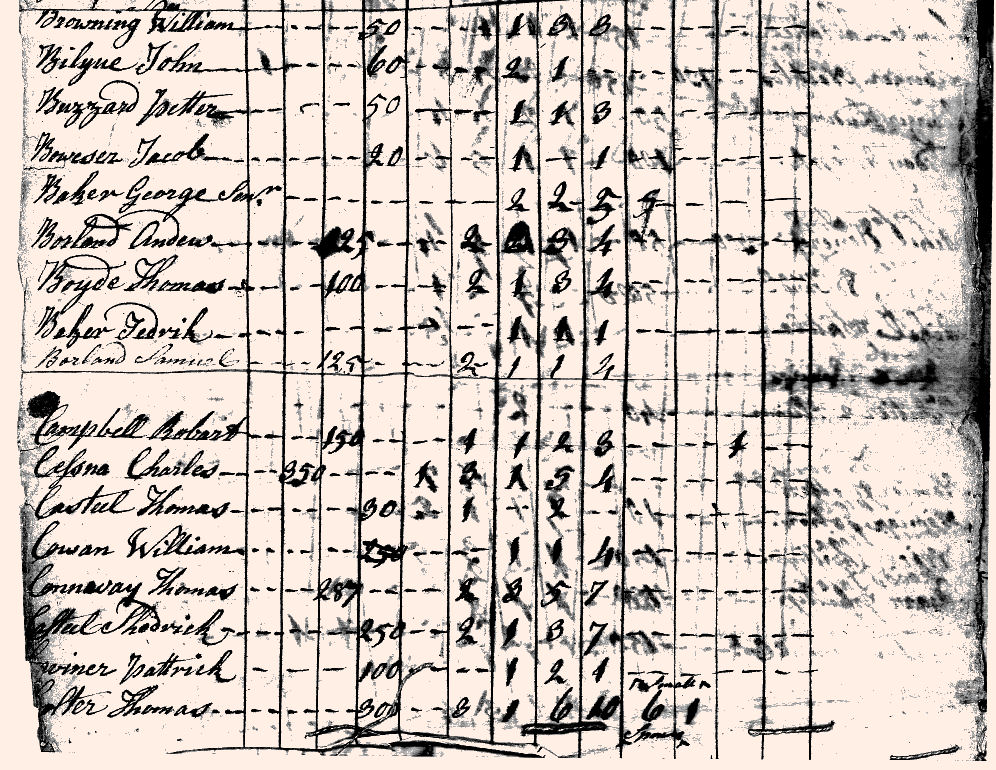 Browning William 50 1 3 3
Bilyue John 60 2 1
Buzzard Petter 50 1 1 3
Bowser Jacob 20 1 1
Baker George Senr 2 2
Borland Andew 125 2 3 4
Boyde Thomas 100 2 1 3 4
Baker Fedrik 1 1 1
Borland Samuel 125 2 1 1 4
Campbell Robart 150 1 1 2 3 1
Cessna Charles 350 1 3 1 5 4
Casteel Thomas 30 1 2
Cowan William 1 1 4
Connaway Thomas 287 2 3 5 7
Shedrick 250 2 1 3 7
Pattrick 100 1 2 1
Thomas 300 3 1 6 10 6 1